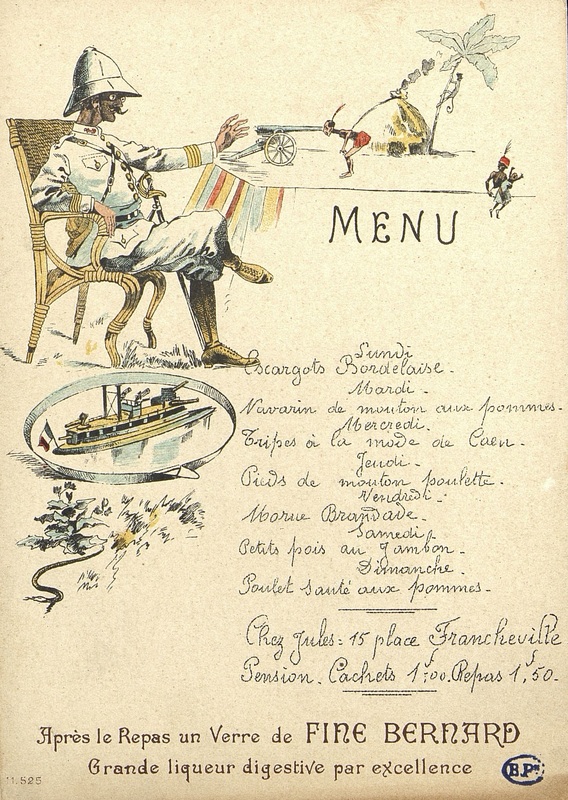 MENU
Lundi
Escargots Bordelaise.
Mardi.
Navarin de mouton aux pommes.
Mercredi.
Tripes à la mode de Caen.
Jeudi.
Pieds de mouton poulette.
Vendredi.
Morue Brandade.
Samedi
Petits pois au Jambon.
Dimanche.
Poulet sauté aux pommes.
Chez Jules = 15 place Francheville
Pension. Cachets 1f00. Repas 1f,50.
Après le Repas un Verre de FINE BERNARD
Grande liqueur digestive par excellence
11.525
B.Px